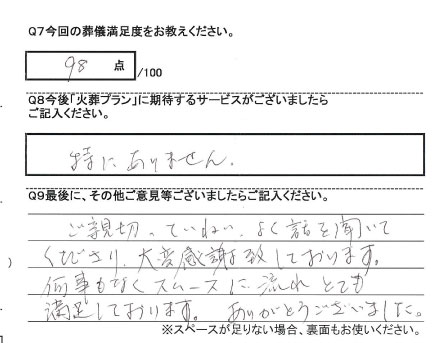 Q7今回の葬儀満足度をお教えください。
98 点 /100
Q8今後「火葬プラン」に期待するサービスがございましたら
ご記入ください。
特にありません.
Q9最後に、その他ご意見等ございましたらご記入ください。
ご親切、ていねい、よく話を聞いて
くださり、大変感謝致しております。
何事もなくスムースに流れとても
満足しております。 ありがとうございました。
※スペースが足りない場合、裏面もお使いください。